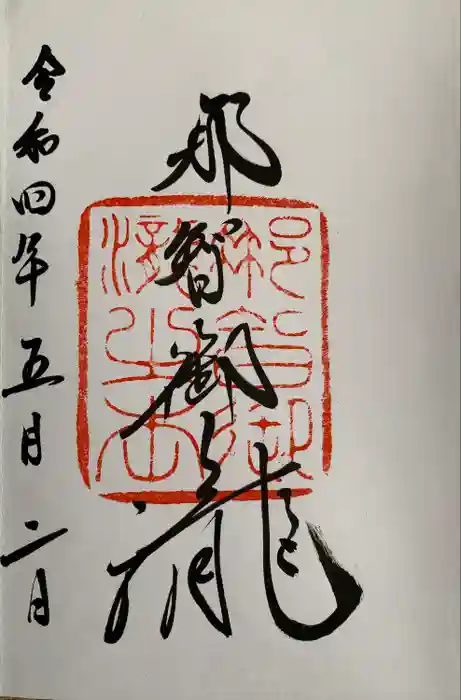 那智御瀧
令和四年五月二日